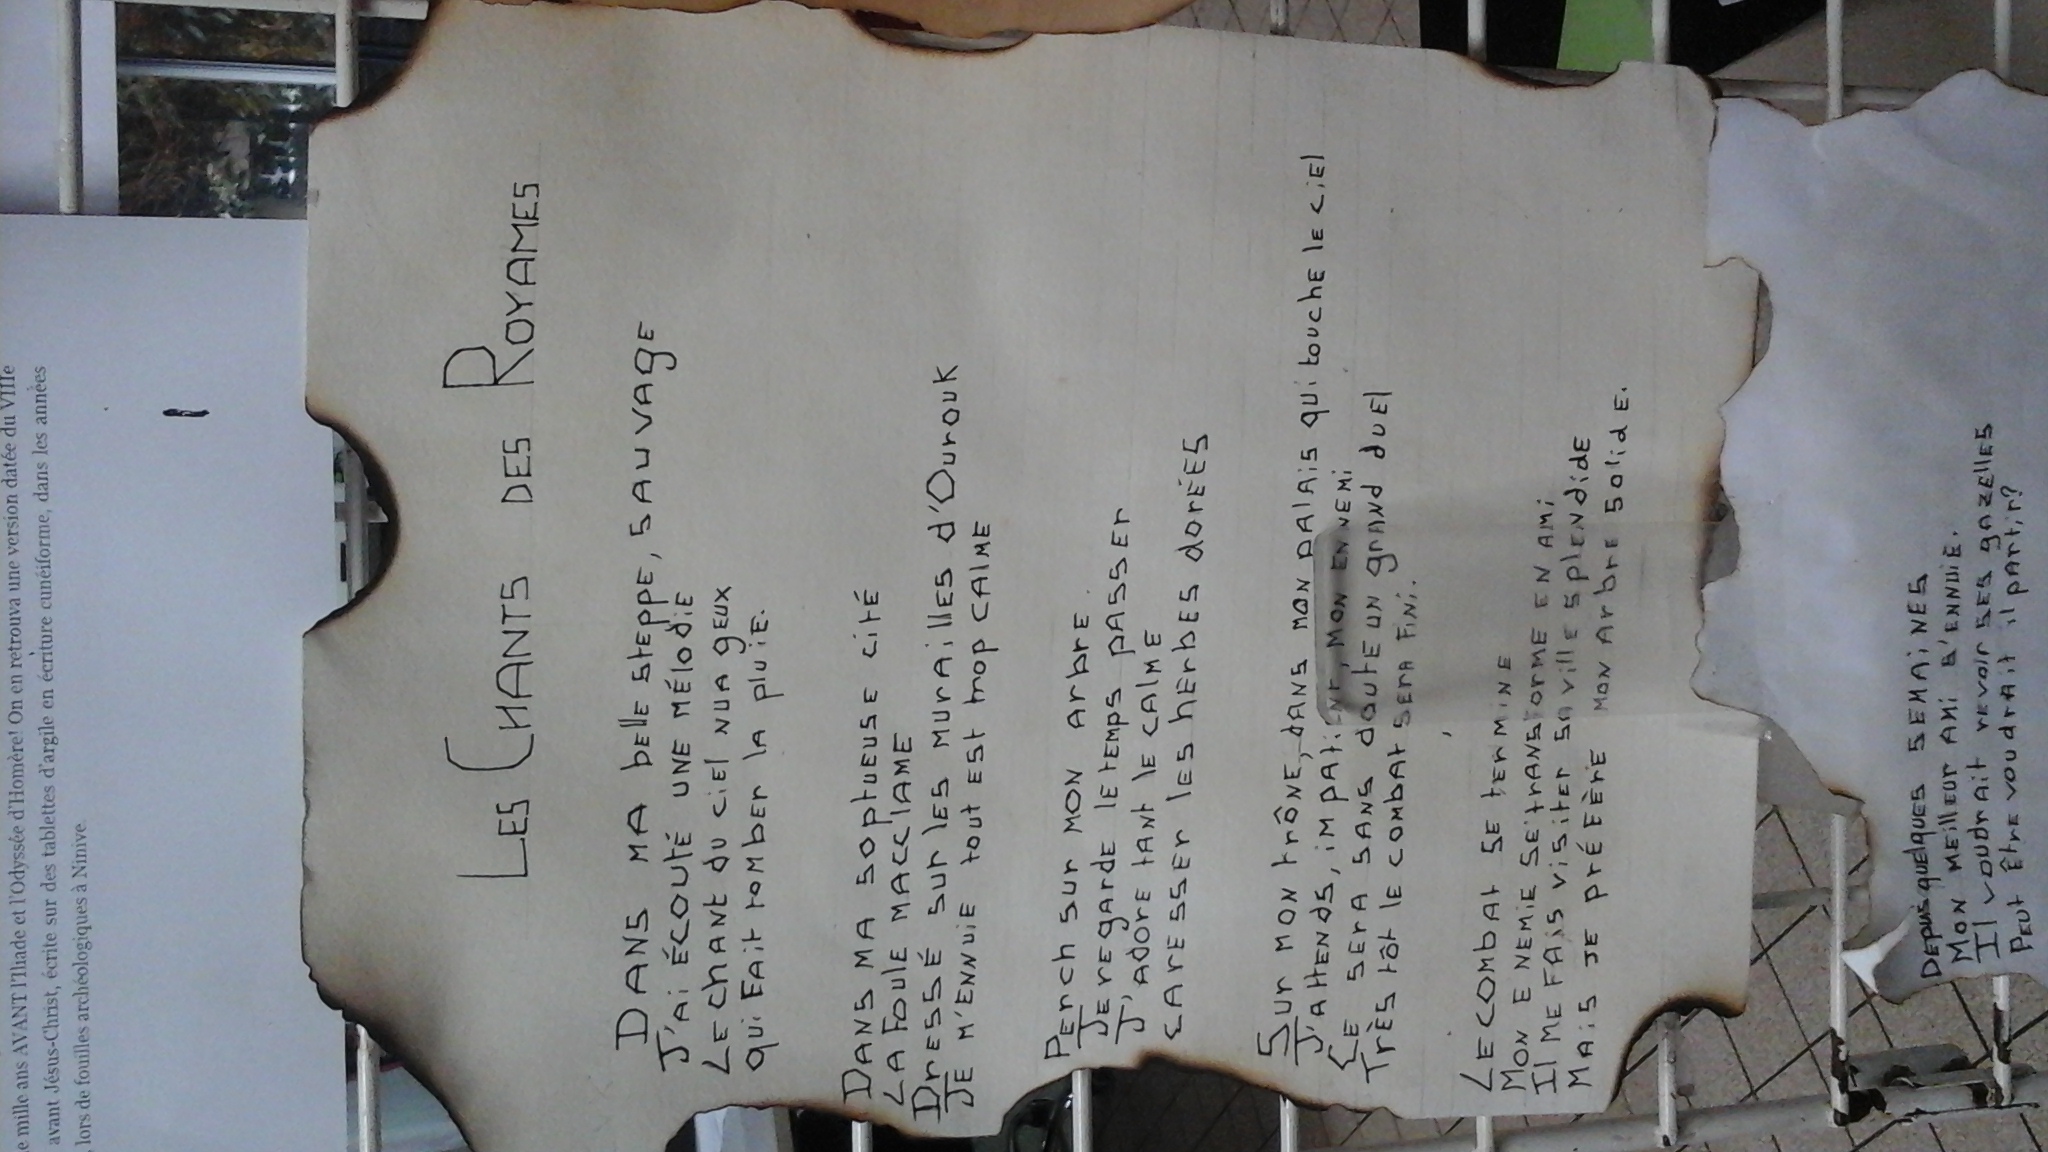 e mille ans AVANT l'Iliade et l'Odyssée d'Homère! On en retrouva une version datée du VIIIe
avant Jésus-Christ, écrite sur des tablettes d'argile en écriture cunéiforme, dans les années
, lors de fouilles archéologiques à Ninive.
LES CHANTS DES ROYAMES
DANS MA belle steppe, SAUVAGE
J'Ai ÉCOUTÉ UNE MÉLODIE
LE CHANT DU CiEl NUAGEUX
QUi FAit tomber lA pluiE.
DANS MA SOPTUEUSE CITÉ
LA FOULE M'ACCLAME
DRESSÉ SUR LES MURAILLES d'OUROUK
JE M'ENNUIE tOUT EST trop CALME
PERCH SUR MON ARBRE.
JE REGARDE LE TEMPS PASSER
J'ADORE TANT LE CALME
CARESSER LES HERBES DORÉES
SUR MON TRÔNE, DANS MON PALAIS QUi TOUCHE LE CiEl
J'AttENDS, IMPATIENT, MON ENNEMi
CE SERA SANS DOUTE UN GRAND DUEL
TRÈS TÔT LE COMBAT SERA FINi.
LE COMBAT SE TERMINE
MON ENEMIE SE TRANSFORME EN AMi
Il ME FAIS VISITER SA VILLE SPLENDIDE
MAIS JE PRÉFÈRE MON ARBRE SOLIDE.
DEPUIS QUELQUES SEMAINES
MON MEILLEUR AMi S'ENNUIE.
Il VOUDRAIT REVOIR SES GAZELLES
PEUT ÊTRE VOUDRAIT IL PARTIR?